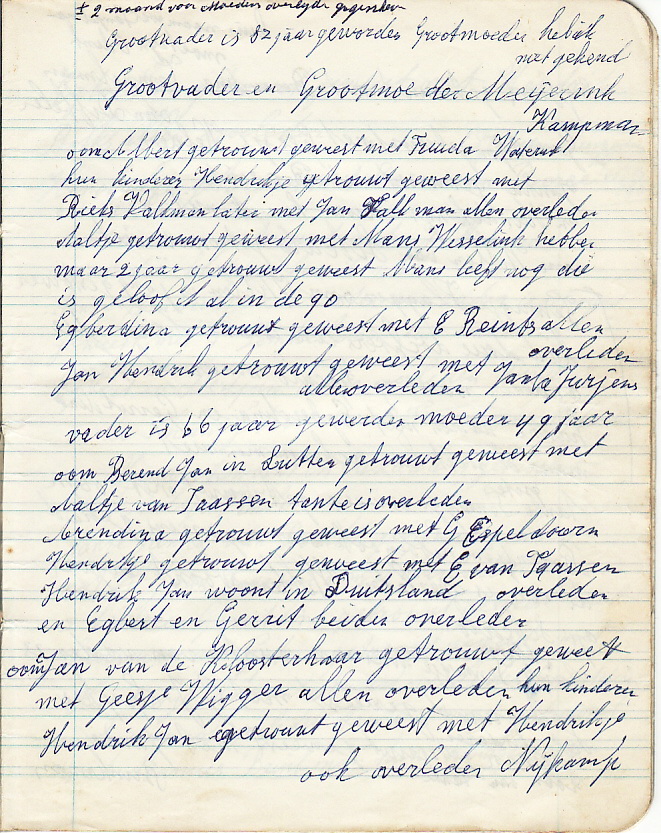 ± 2 maand voor Moeders overlyde gegeven
Grootvader is 82 jaar geworden Grootmoeder heb ik
niet gekend
Grootvader en Grootmoeder Meijerink
Kampman
oom Albert getrouwt geweest met Truida
hun kinderen Hendrikje getrouwt geweest met
Rieks Kalkman later met Jan Kalkman allen overleden
Aaltje getrouwt geweest met Mans Wesselink hebben
maar 2 jaar getrouwt geweest Mans leeft nog die
is geloof k al in de 90
Egberdina getrouwt geweest met E Reints allen
overleden
Jan Hendrik getrouwt geweest met
allen overleden Janta Jurjens
vader is 66 jaar geworden moeder 49 jaar
oom Berend Jan in Lutten getrouwt geweest met
Aaltje van Faassen tante is overleden
Arendina getrouwt geweest met G Espeldoorn
Hendrikje getrouwt geweest met E van Faassen
Hendrik Jan woont in Duitsland overleden
en Egbert en Gerrit beiden overleden
oom Jan van de Kloosterhaar getrouwt geweest
met Geesje Wigger allen overleden hun kinderen
Hendrik Jan getrouwt geweest met Hendrikje
ook overleden Nijkamp